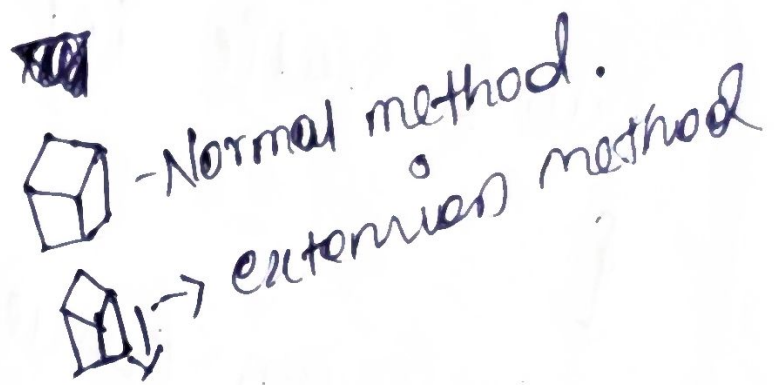 - Normal method.
→ extension method